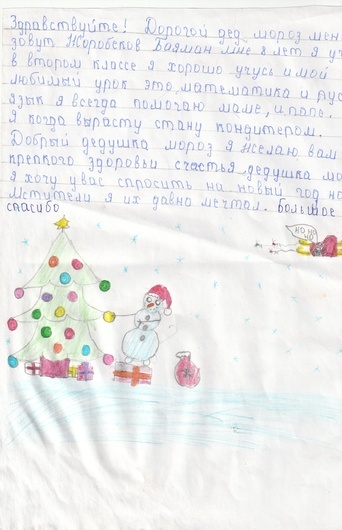 Здравствуйте! Дорогой дед мороз мен
зовут Жоробеков Баяман мне 8 лет я уч
в втором классе я хорошо учусь и мой
любимый урок это математика и рус
язык я всегда помогаю маме, и папе.
Я когда вырасту стану кондитером.
Добрый дедушка мороз я желаю вам
крепкого здоровьи счастья дедушка мо
я хочу у вас спросить на новый год но
Мстители я их давно мечтал. большое
спасибо
HO HO
HO